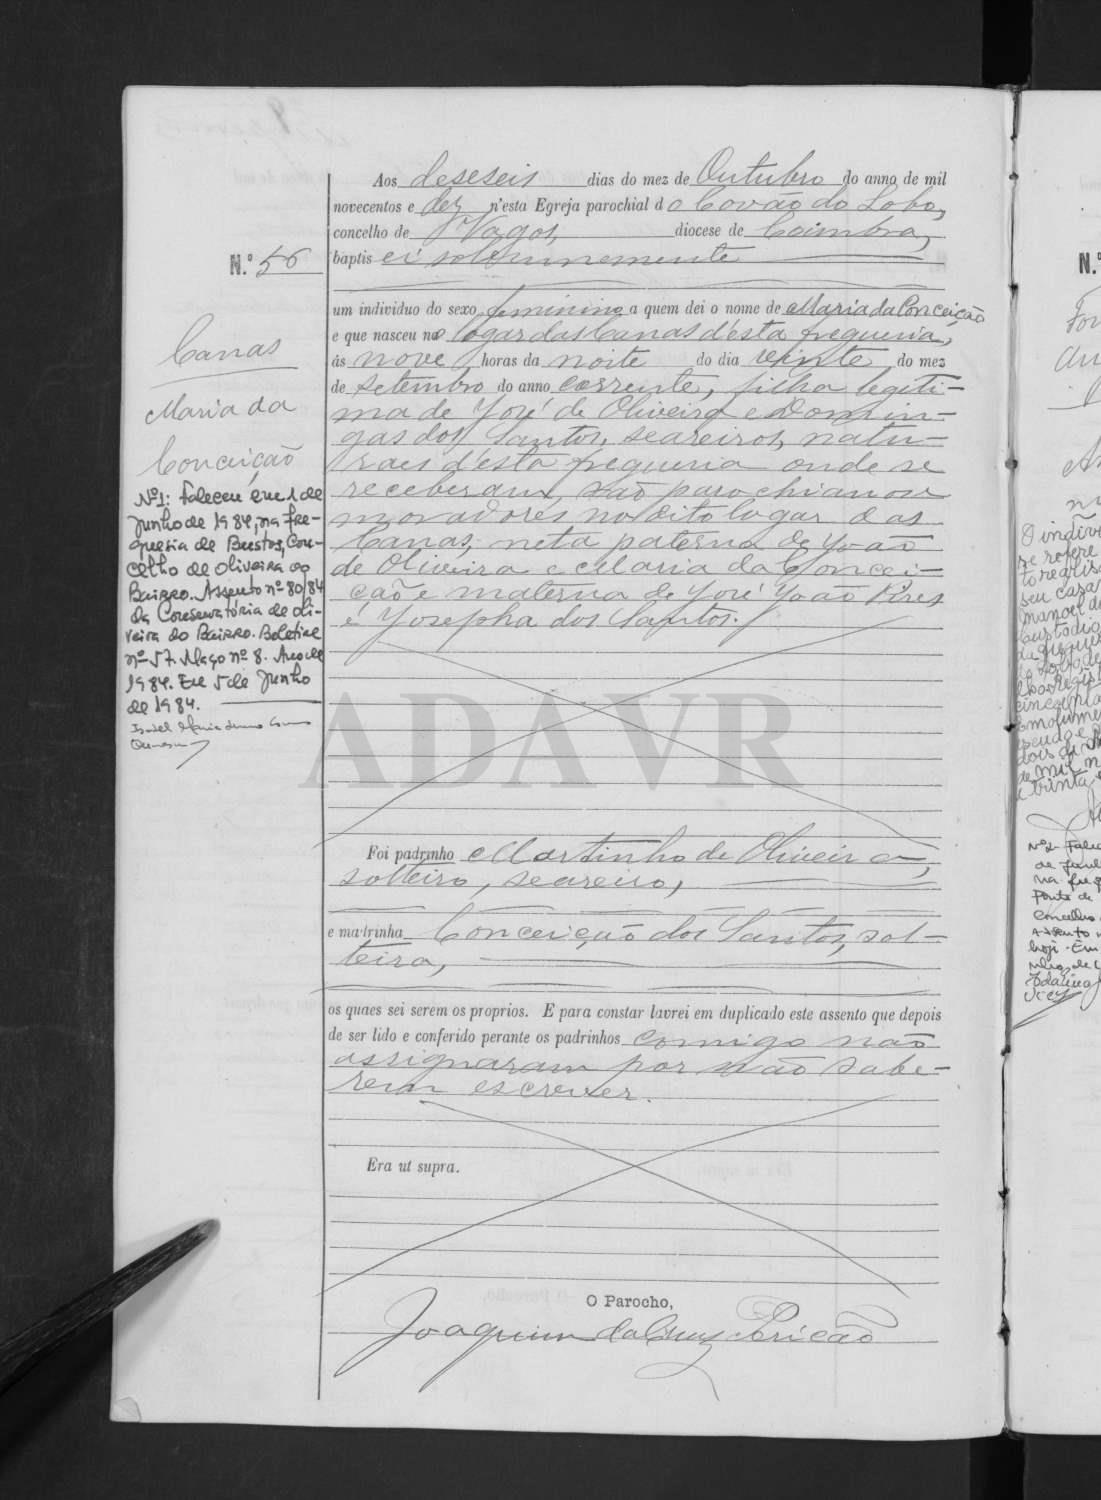 Aos deseseis dias do mez de Outubro do anno de mil
novecentos e dez n'esta Egreja parochial do Covão do Lobo,
concelho de Vagos, diocese de Coimbra,
N.º 56
baptisei solemnemente
um individuo do sexo feminino a quem dei o nome de Maria da Conceição
e que nasceu no logar das Canas d'esta freguesia,
ás nove horas da noite do dia vinte do mez
de setembro do anno corrente, filha legiti-
ma de José de Oliveira e Domin-
gas dos Santos, seareiros, natu-
raes d'esta freguesia onde se
receberam, são parochianos e
moradores no dito logar das
Canas, neta paterna de João
de Oliveira e Maria da Concei-
ção e materna de José João Pires
e Josepha dos Santos.
Canas
Maria da
Conceição
Nº1: Faleceu em 1 de
Junho de 1984, na fre-
guesia de Bustos, Con-
celho de Oliveira do
Bairro. Assento nº 80/84
da Conservatória de Oli-
veira do Bairro. Boletim
nº 57. Maço nº 8. Ano de
1984. Em 5 de Junho
de 1984.
ADAVR
Foi padrinho Martinho de Oliveira,
solteiro, seareiro,
e madrinha Conceição dos Santos, sol-
teira,
os quaes sei serem os proprios. E para constar lavrei em duplicado este assento que depois
de ser lido e conferido perante os padrinhos comigo não
assignaram por não sabe-
rem escrever.
Era ut supra.
O Parocho,
Joaquim da Cruz
N.º